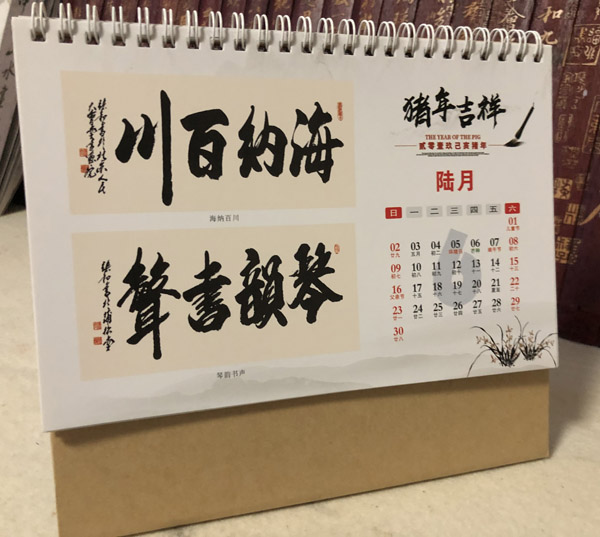 海納百川
海纳百川
琴韻書聲
琴韵书声
猪年吉祥
THE YEAR OF THE PIG
贰零壹玖己亥猪年
陆月
6
日 一 二 三 四 五 六
01
儿童节
02 03 04 05 06 07 08
廿九 五月 初二 环境日 芒种 端午节 初六
09 10 11 12 13 14 15
初七 初八 初九 初十 十一 十二 十三
16 17 18 19 20 21 22
父亲节 十五 十六 十七 十八 夏至 二十
23 24 25 26 27 28 29
廿一 廿二 廿三 廿四 廿五 廿六 廿七
30
廿八